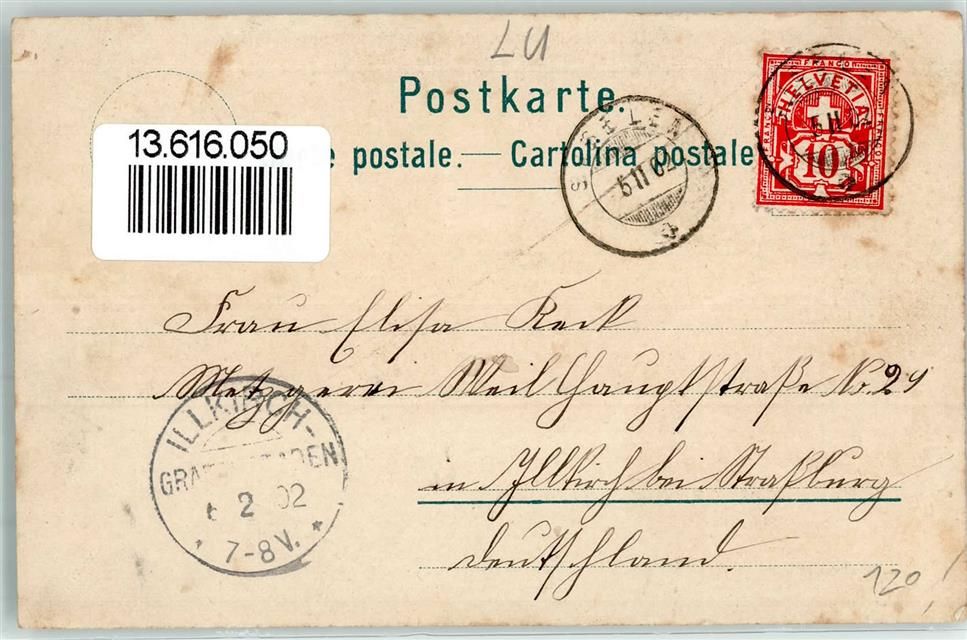 LU
Postkarte.
postale.— Cartolina postale
13.616.050
5 II 02
FRANCO
HELVETIA
10
Frau Elisa Keck
Metzgerei Weil Hauptstraße No 29
in Illkirch bei Straßburg
Deutschland.
ILLKIRCH-
GRAFENSTADEN
2 02
* 7-8 V. *
120